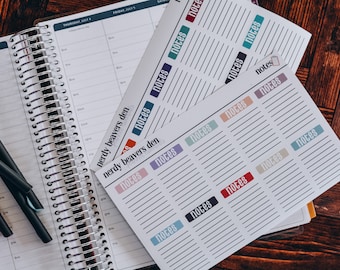 THURSDAY, JULY 4
FRIDAY, JULY 5
notes
notes
notes
notes
notes
notes
nerdy beavers den
notes
notes
notes
notes
notes
notes
nerdy beavers den
notes
notes
notes
notes
notes
notes